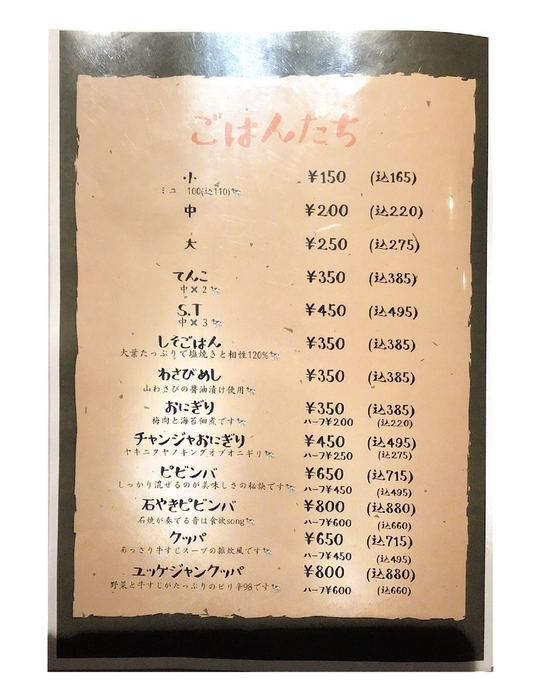 ごはんたち
小 ¥150 (込165)
ミニ 100(込110)
中 ¥200 (込220)
大 ¥250 (込275)
てんこ ¥350 (込385)
中×2
S.T ¥450 (込495)
中×3
しそごはん ¥350 (込385)
大葉たっぷりで塩焼きと相性120%
わさびめし ¥350 (込385)
山わさびの醤油漬け使用
おにぎり ¥350 (込385)
梅肉と海苔佃煮です ハーフ¥200 (込220)
チャンジャおにぎり ¥450 (込495)
ヤキニクヤノキングオブオニギリ ハーフ¥250 (込275)
ピビンバ ¥650 (込715)
しっかり混ぜるのが美味しさの秘訣です ハーフ¥450 (込495)
石やきピビンバ ¥800 (込880)
石焼が奏でる音は食欲song ハーフ¥600 (込660)
クッパ ¥650 (込715)
あっさり牛すじスープの雑炊風です ハーフ¥450 (込495)
ユッケジャンクッパ ¥800 (込880)
野菜と牛すじがたっぷりのピリ辛98です ハーフ¥600 (込660)